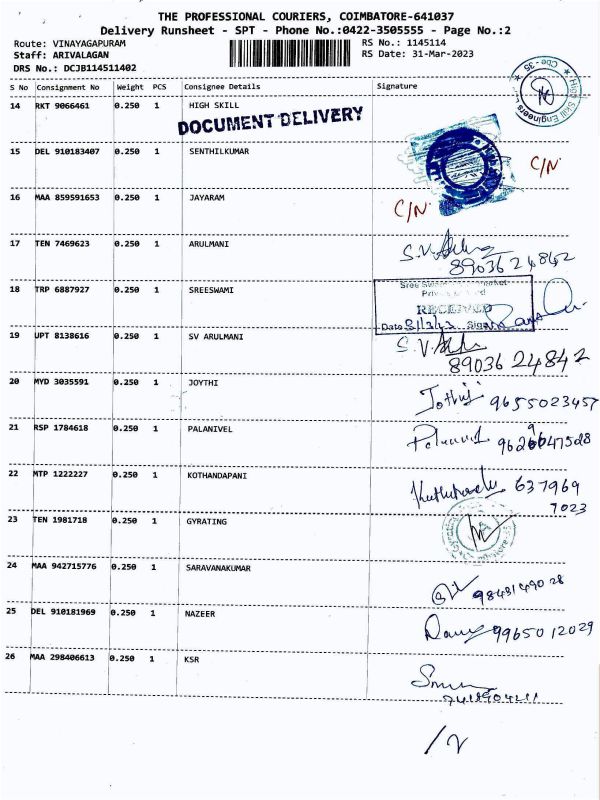 THE PROFESSIONAL COURIERS, COIMBATORE-641037
Delivery Runsheet - SPT - Phone No.:0422-3505555 - Page No.:2
Route: VINAYAGAPURAM
Staff: ARIVALAGAN
DRS No.: DCJB114511402
RS No.: 1145114
RS Date: 31-Mar-2023
S No Consignment No Weight PCS Consignee Details Signature
14 RKT 9066461 0.250 1 HIGH SKILL
DOCUMENT DELIVERY
15 DEL 910183407 0.250 1 SENTHILKUMAR C/N.
16 MAA 859591653 0.250 1 JAYARAM C/N.
17 TEN 7469623 0.250 1 ARULMANI S.V.
89036 24842
18 TRP 6887927 0.250 1 SREESWAMI
RECEIVED
Date Sign
19 UPT 8138616 0.250 1 SV ARULMANI S.V.
89036 24842
20 MYD 3035591 0.250 1 JOYTHI 9655023457
21 RSP 1784618 0.250 1 PALANIVEL
22 MTP 1222227 0.250 1 KOTHANDAPANI 637969
7023
23 TEN 1981718 0.250 1 GYRATING
24 MAA 942715776 0.250 1 SARAVANAKUMAR
25 DEL 910181969 0.250 1 NAZEER 9965012029
26 MAA 298406613 0.250 1 KSR